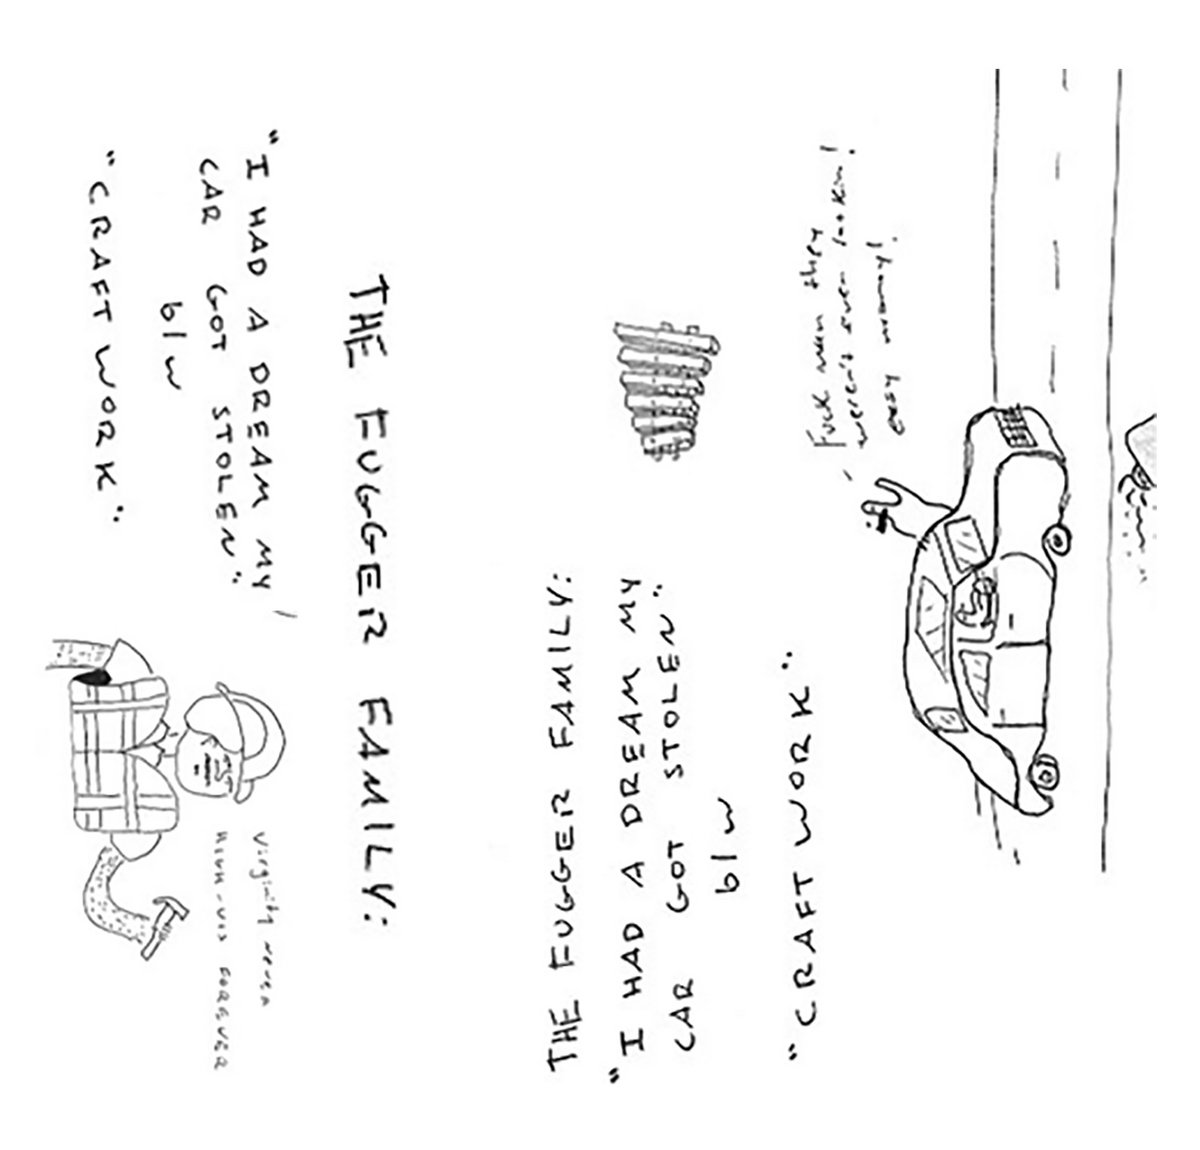 THE FUGGER FAMILY:
"I HAD A DREAM MY
CAR GOT STOLEN".
b/w
"CRAFT WORK".
Virginity never
HIGH-VIS FOREVER
THE FUGGER FAMILY:
"I HAD A DREAM MY
CAR GOT STOLEN".
b/w
"CRAFT WORK".
- Fuck man they
weren't even lookin!
easy money!